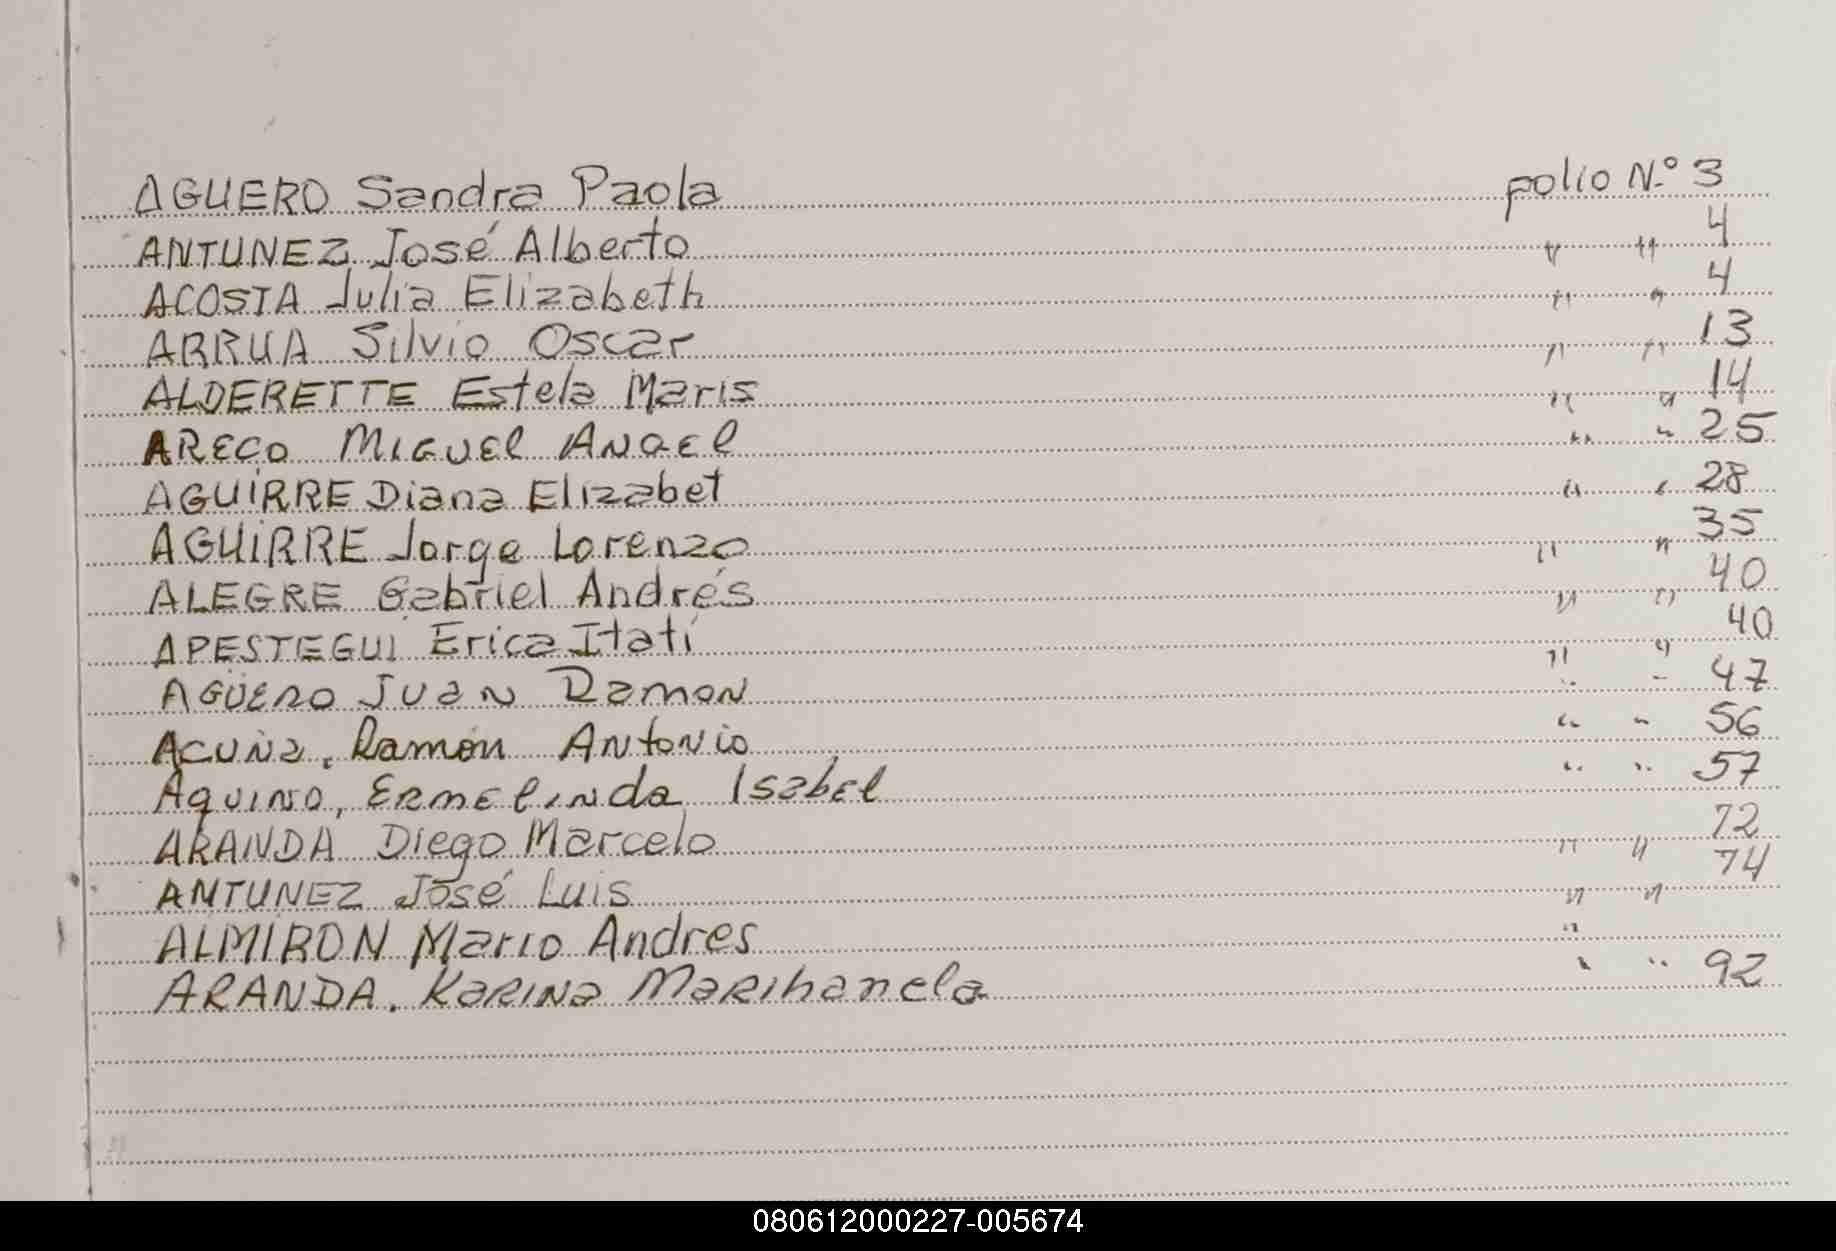 AGUERO Sandra Paola folio N.º 3
ANTUNEZ José Alberto " " 4
ACOSTA Julia Elizabeth " " 4
ARRUA Silvio Oscar " " 13
ALDERETTE Estela Maris " " 14
ARECO MIGUEL ANGEL " " 25
AGUIRRE Diana Elizabet " " 28
AGUIRRE Jorge Lorenzo " " 35
ALEGRE Gabriel Andrés " " 40
APESTEGUI Erica Itatí " " 40
AGÜERO JUAN RAMON " " 47
ACUÑA, Ramón ANTONIO " " 56
AQUINO, ERMELINDA ISABEL " " 57
ARANDA Diego Marcelo " " 72
ANTUNEZ José Luis " " 74
ALMIRON Mario Andres "
ARANDA, KARINA MARIHANELA " " 92
080612000227-005674